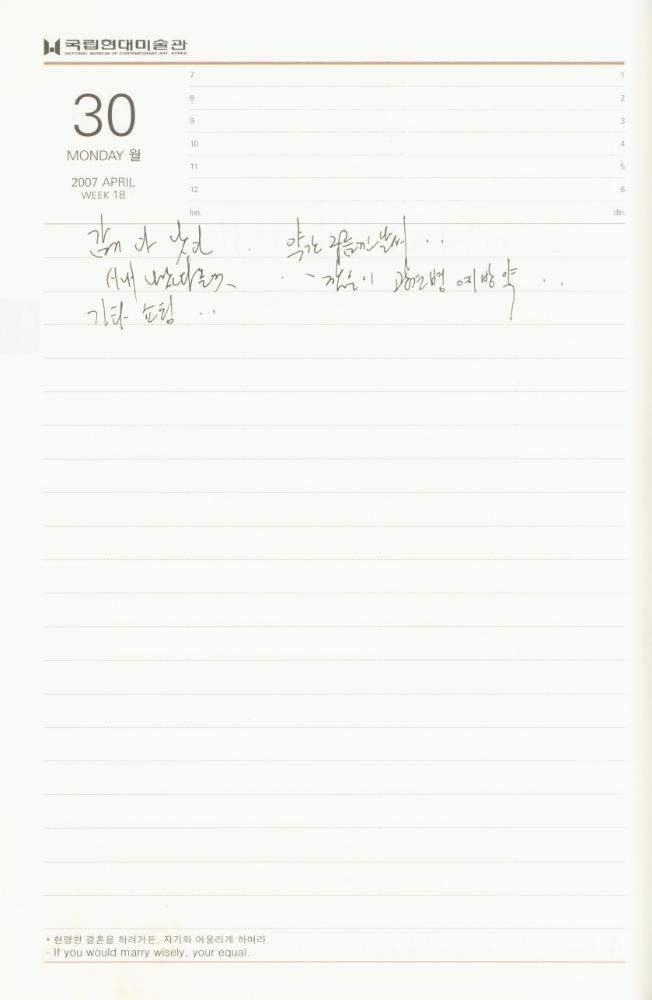 국립현대미술관
NATIONAL MUSEUM OF CONTEMPORARY ART, KOREA
7 1
30 8 2
9 3
MONDAY 월 10 4
11 5
2007 APRIL
WEEK 18 12 6
lun. din.
감기 다 낫고 . 약간 구름낀 날씨 ..
시내 . . 예방약 ..
기타 쇼핑 ..
* 현명한 결혼을 하려거든, 자기와 어울리게 하여라.
- If you would marry wisely, your equal.